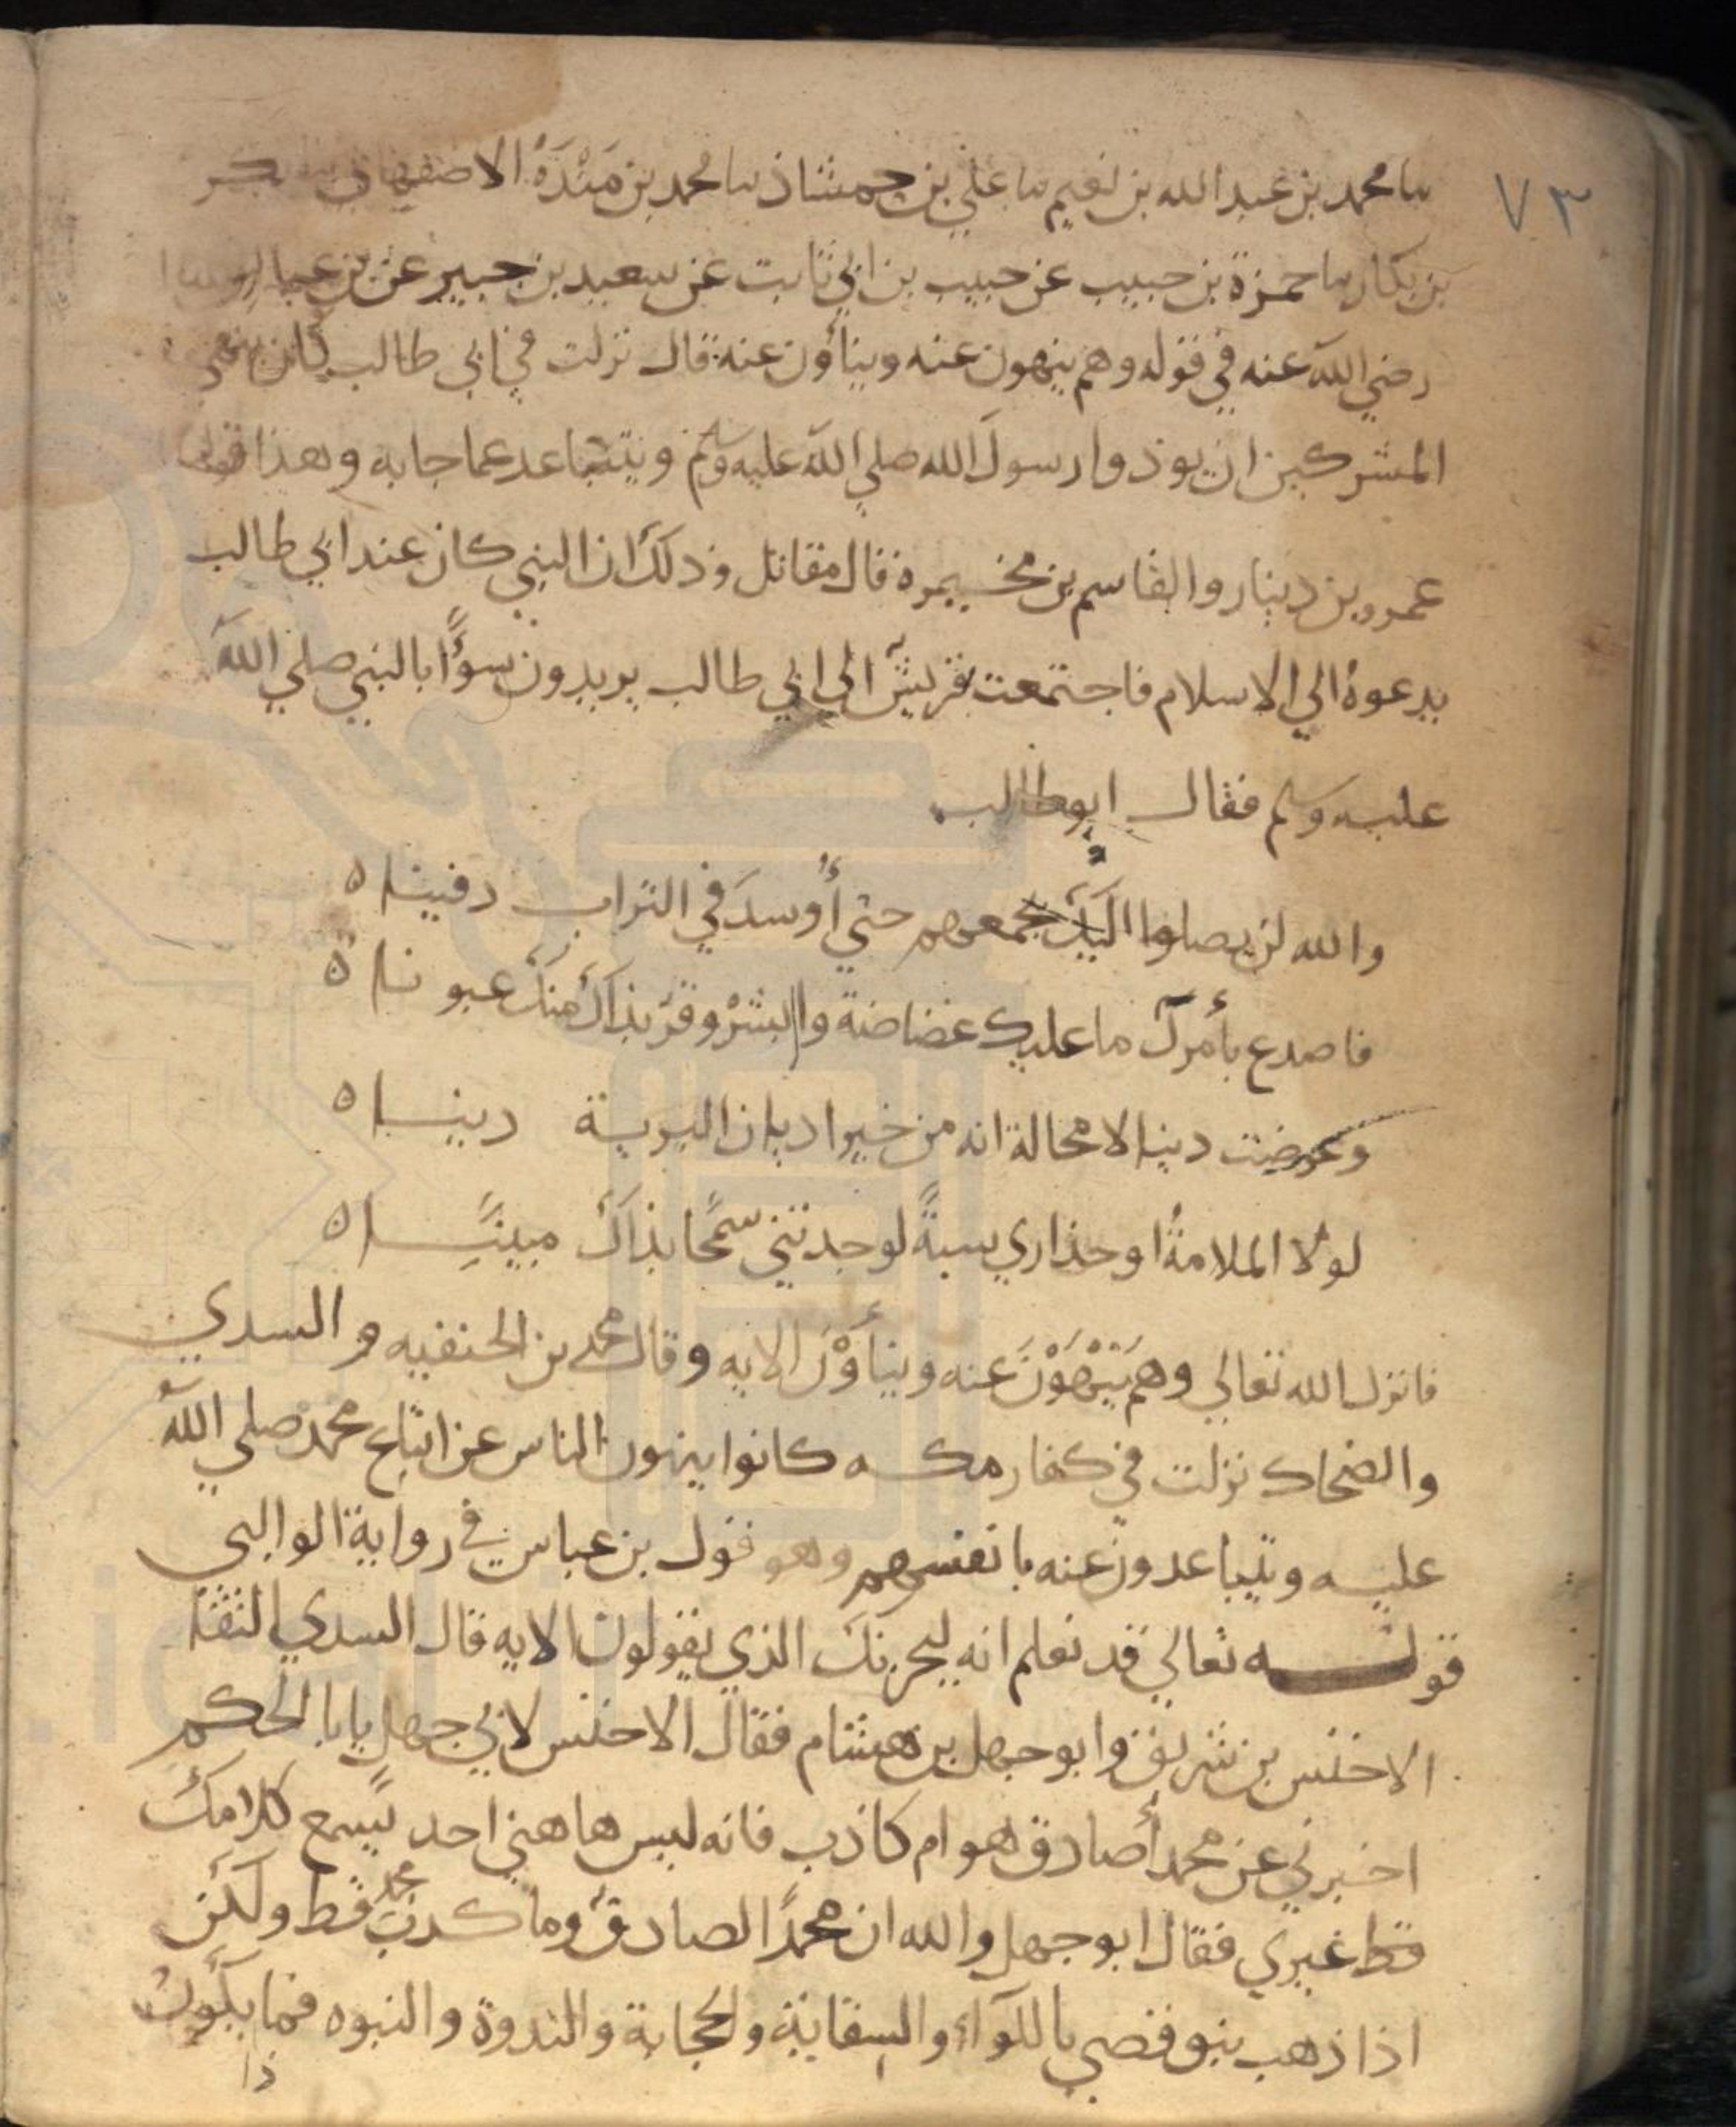 ٧٣
سا محمد بن عبد الله بن نعيم سا علي بن حمشاذ سا محمد بن مَنْدَةُ الاصفهاني بكر
بن بكار سا حمزة بن حبيب عن حبيب بن ابي ثابت عن سعيد بن جبير عن بن عباس
رضي الله عنه في قوله وهم ينهون عنه وينأون عنه قال نزلت في ابي طالب كان ينهى
المشركين ان يوذوا رسول الله صلي الله عليه وسلم ويتباعد عما جا به وهذا قول
عمرو بن دينار والقاسم بن مخيمره قال مقاتل وذلك ان النبي كان عند ابي طالب
يدعوهُ الي الاسلام فاجتمعت قريش الي ابي طالب يريدون سوءًا بالنبي صلي الله
عليه وسلم فقال ابو طالب
والله لن يصلوا اليك بجمعهم حتي أُوسدَ في التراب دفينا ه
فاصدع بأمرك ما عليك غضاضة وابشرْ وقرّ بذاك منك عيونا ه
وعرضت دينا لا محالة انه من خير اديان البرية دينا ه
لولا الملامةُ او حذاري سبةً لوجدتني سمحًا بذاك مبينًا ه
فانزل الله تعالي وهم يَنْهَوْنَ عنه وينأَوْنَ الايه وقال محمد بن الحنفيه والسدي
والضحاك نزلت في كفار مكه كانوا ينهون الناس عن اتباع محمد صلي الله
عليه ويتباعدون عنه بانفسهم وهو قول بن عباس في رواية الوالبي
قوله تعالي قد نعلم انه ليحزنك الذي يقولون الايه قال السدي التقا
الاخنس بن شريق وابو جهل بن هشام فقال الاخنس لابي جهل يابا الحكم
اخبرني عن محمد أصادق هو ام كاذب فانه ليس هاهني احد يسمع كلامك
قط غيري فقال ابو جهل والله ان محمدًا لصادق وما كذب محمد قط ولكن
اذا ذهب بنو قصي باللوآء والسقاية والحجابة والندوة والنبوه فما يكون
ذا